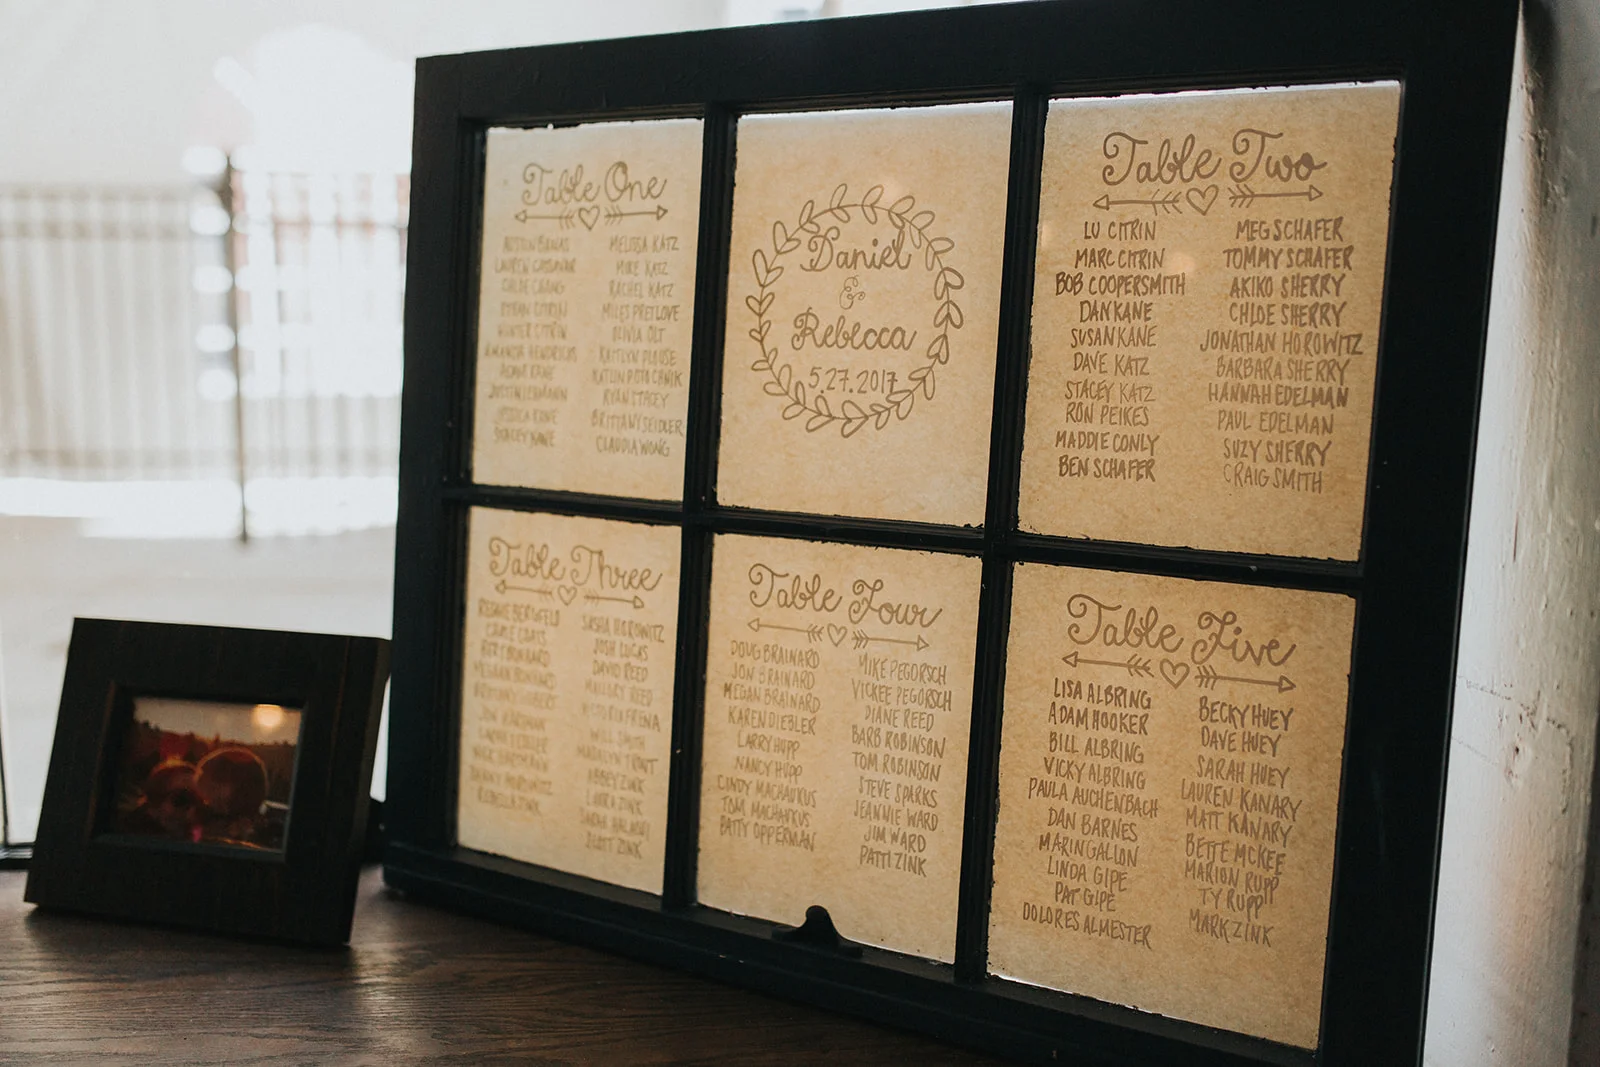 Table One
LAUREN
CHLOE CHANG
CITRIN
HUNTER CITRIN
AMANDA HENDRICKS
KANE
JUSTIN LEHMANN
JESSICA KANE
STACEY KANE
MELISSA KATZ
MIKE KATZ
RACHEL KATZ
MILES PRETLOVE
OLIVIA OLT
KAITLYN PLOUSE
KATLIN POTOCHNIK
RYAN STACEY
BRITTANY SEIDLER
CLAUDIA WONG
Daniel
&
Rebecca
5.27.2017
Table Two
LU CITRIN
MARC CITRIN
BOB COOPERSMITH
DAN KANE
SUSAN KANE
DAVE KATZ
STACEY KATZ
RON PEIKES
MADDIE CONLY
BEN SCHAFER
MEG SCHAFER
TOMMY SCHAFER
AKIKO SHERRY
CHLOE SHERRY
JONATHAN HOROWITZ
BARBARA SHERRY
HANNAH EDELMAN
PAUL EDELMAN
SUZY SHERRY
CRAIG SMITH
Table Three
BERGFELD
DANNY HOROWITZ
REBECCA ZINK
SASHA HOROWITZ
JOSH LUCAS
DAVID REED
MALLORY REED
VICTORIA FRENA
WILL SMITH
MADALYN TROUT
ABBEY ZINK
LAURA ZINK
SARAH
SCOTT ZINK
Table Four
DOUG BRAINARD
JON BRAINARD
MEGAN BRAINARD
KAREN DIEBLER
LARRY HUPP
NANCY HUPP
CINDY MACHAUKUS
TOM MACHAUKUS
PATTY OPPERMAN
MIKE PEGORSCH
VICKEE PEGORSCH
DIANE REED
BARB ROBINSON
TOM ROBINSON
STEVE SPARKS
JEANNIE WARD
JIM WARD
PATTI ZINK
Table Five
LISA ALBRING
ADAM HOOKER
BILL ALBRING
VICKY ALBRING
PAULA AUCHENBACH
DAN BARNES
MARIN GALLON
LINDA GIPE
PAT GIPE
DOLORES ALMESTER
BECKY HUEY
DAVE HUEY
SARAH HUEY
LAUREN KANARY
MATT KANARY
BETTE MCKEE
MARION RUPP
TY RUPP
MARK ZINK